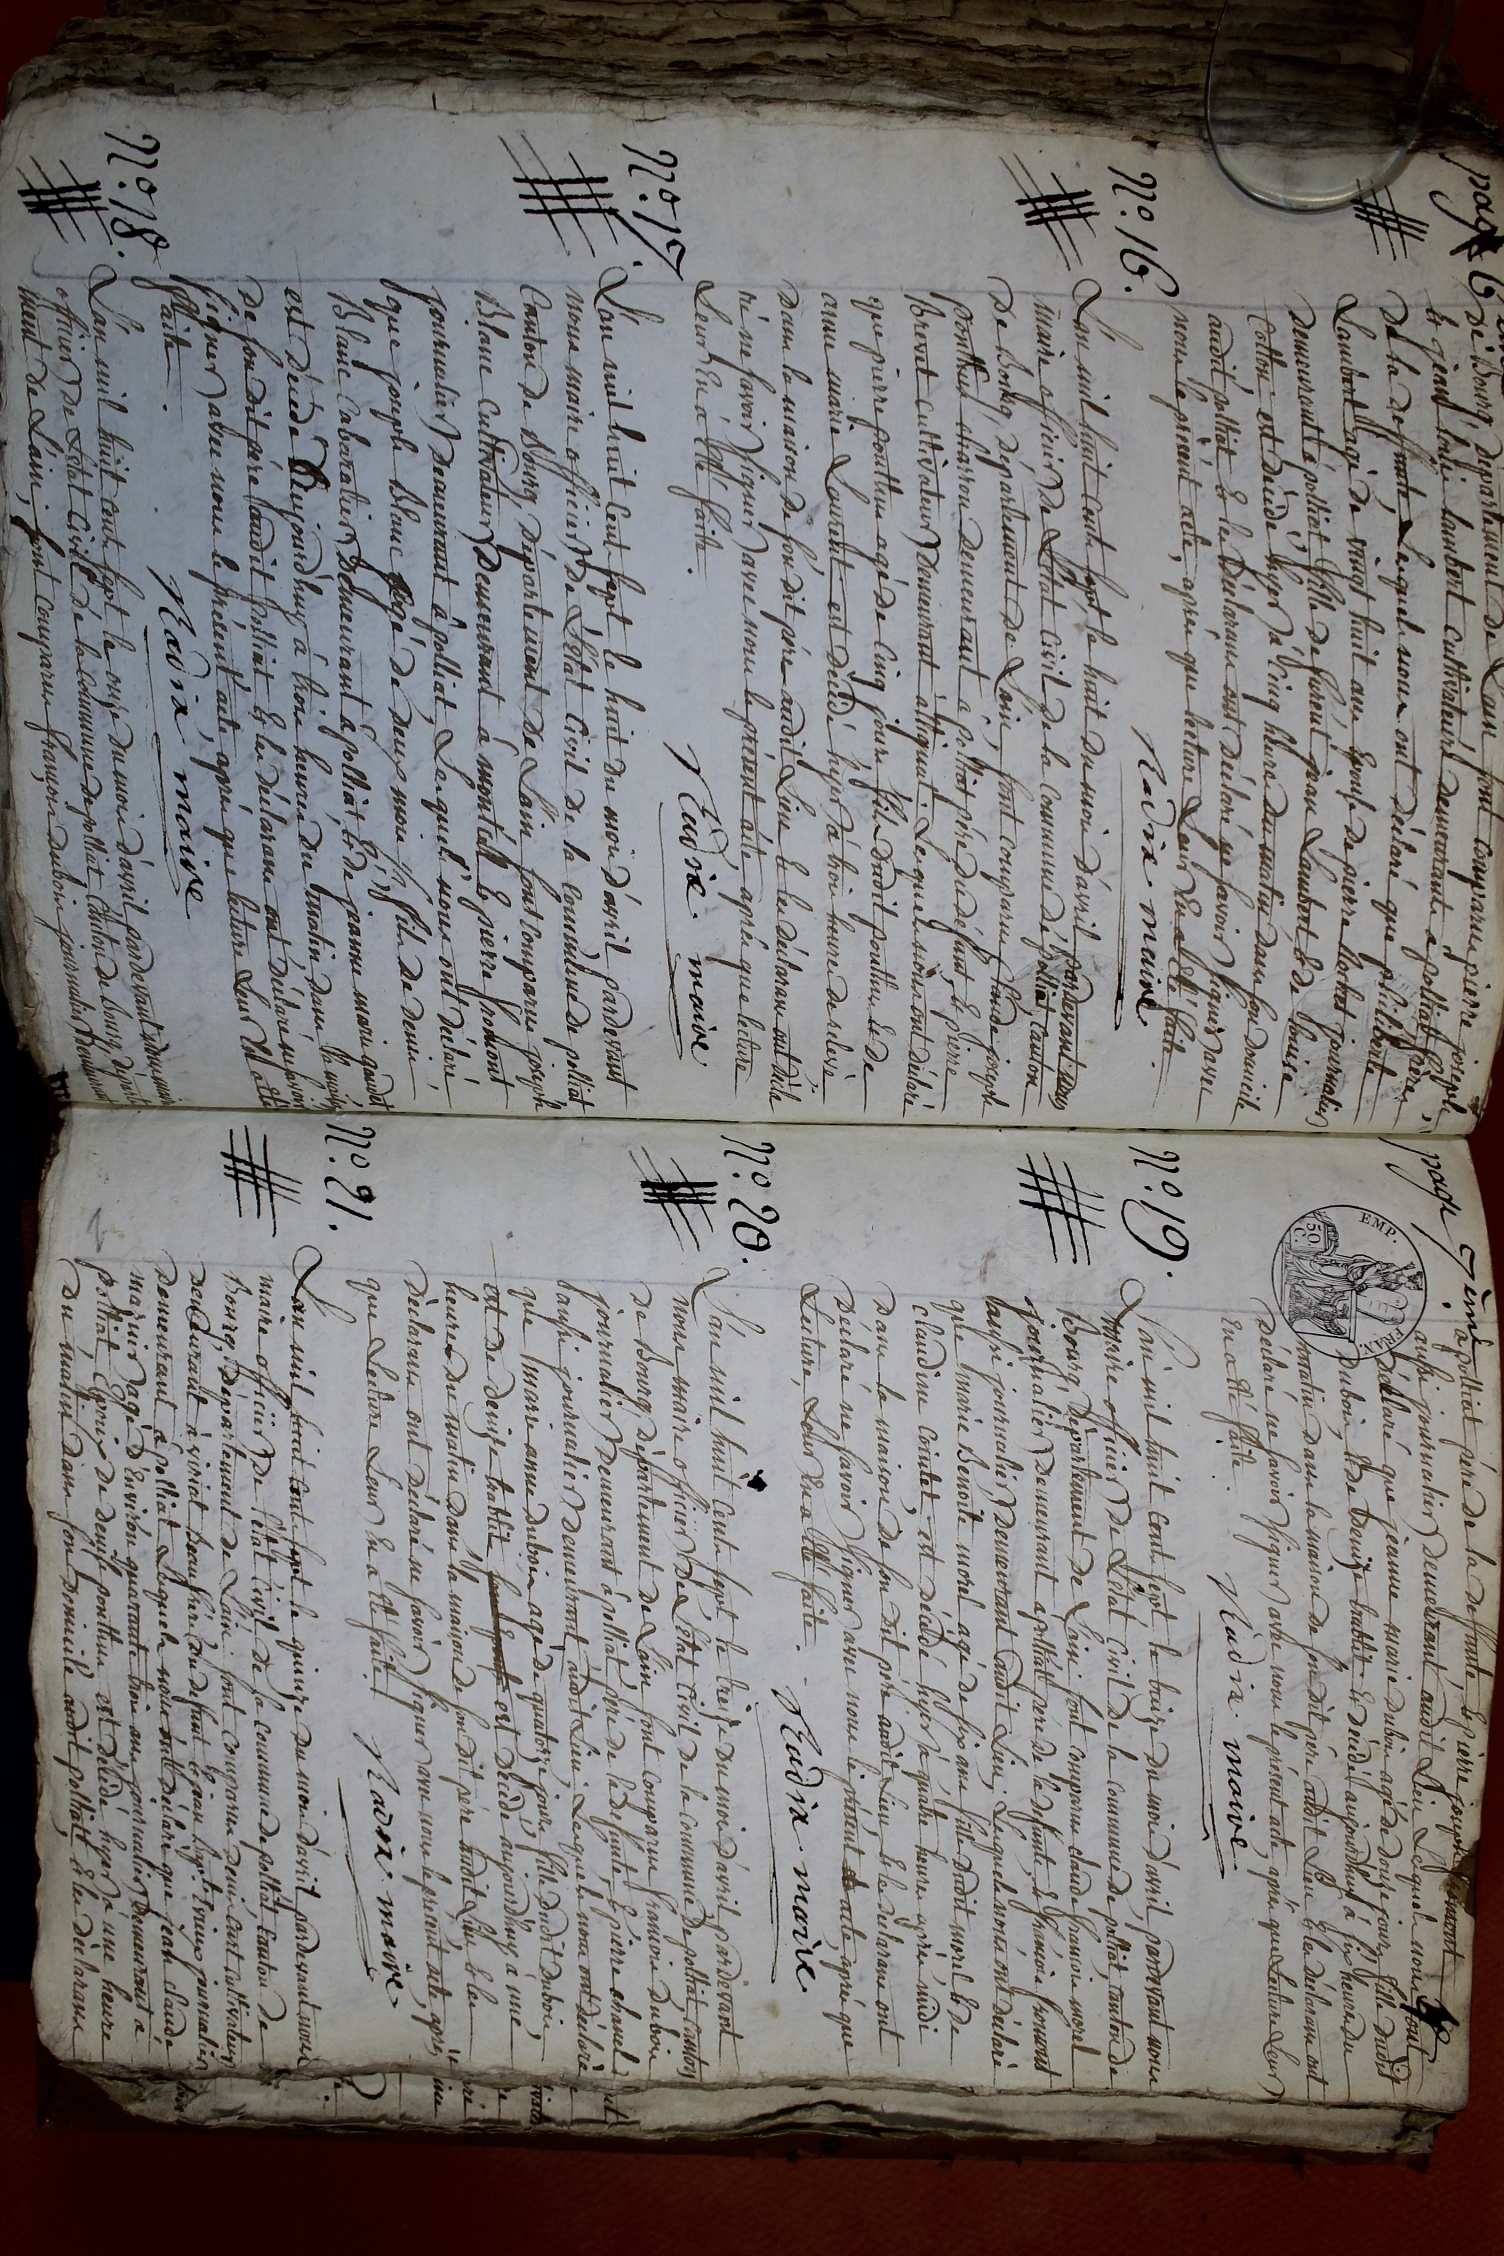 page 6
de Bourg, département de Lain, sont comparus pierre joseph
& jean loubi lambert cultivateurs demeurants a polliat frères
de la deffunte Lequel nous ont déclaré que philiberte
Lambert agé de vingt huit ans Epouse de pierre journalier
demeurante á polliat, fille de florent jean Lambert & de Louise
Cotton est décédé hyer á Cinq heures du matin dans son domicile
audit polliat & les déclarans ont déclaré ne savoir signer avec
nous le présent acte, après que lecture Leur En a été faite.
Nadix maire
N.º 16.
L'an mil huit Cents sept le huit du mois d'avril pardevant nous
maire officier de L'état civil de la commune de polliat, canton
de Bourg, département de Lain, sont comparus Claude joseph
ponthus charron demeurant a polliat père du défunt, & pierre
Brevet cultivateur demeurant á attignat. Lequel nous ont déclaré
que pierre ponthus agé de Cinq jours fils dudit ponthus & de
anne marie Laurent est décédé hyer á trois heures de relevé
dans la maison de son dit père audit Lieu & les déclarans ont déclaré
ne savoir signer avec nous le présent acte après que lecture
Leur En á été faite.
Nadix. maire
N.º 17.
L'an mil huit Cent sept le huit du mois d'avril pardevant
nous maire officier de L'état Civil de la commune de polliat
Canton de Bourg, département de Lain sont comparus joseph
Blanc Cultivateur demeurant á montcet & pierre promont
journalier demeurant á polliat, Lequel nous ont déclaré
que joseph Blanc agé de deux mois fils de denis
Blanc Laboureur demeurant á polliat & de jeanne marie
est décédé aujourd'huy á trois heures du matin dans la maison
de son dit père audit polliat & les déclarans ont déclaré ne savoir
signer avec nous le présent acte après que lecture Leur En a été
faite.
Nadix, maire
N.º 18.
L'an mil huit cent sept le onze du mois d'avril pardevant nous maire
officier de L'état Civil de la commune de polliat Canton de bourg, départe
ment de Lain, sont comparus françois dubois journalier demeurant
page 7 ème
á polliat père de la deffunte, & pierre joseph promont
aussi journalier demeurant audit Lieu Lequel nous ont
déclaré que jeanne marie dubois agé de douze jours fille dudit
dubois & de denise & décédé aujourd'huy á six heures du
matin dans la maison de son dit père audit Lieu & les déclarans ont
déclaré ne savoir signer avec nous le présent acte, après que Lecture Leur
En a été faite.
EMP. FRAN.
50. C.
Nadix. maire
N.º 19.
L'an mil huit cent sept le treize du mois d'avril, pardevant nous
maire officier de L'état Civil de la commune de polliat, canton de
Bourg, département de Lain sont comparus claude françois morel
journalier demeurant á polliat père de le défunte, & françois promont
aussi journalier demeurant audit Lieu, Lequel nous ont déclaré
que marie Benoite morel agé de six ans fille dudit morel & de
claudine Cointet est décédé hyer á quatre heures après midi
dans la maison de son dit père audit Lieu & les déclarans ont
déclaré ne savoir signer avec nous le présent acte, après que
Lecture, Leur En a été faite.
Nadix. maire
N.º 20.
L'an mil huit Cents sept le treize du mois d'avril pardevant
nous maire officier de L'état Civil de la commune de polliat canton
de Bourg département de Lain sont comparus françois dubois
journalier demeurant á polliat, père de le défunte, & pierre chanel
aussi journalier demeurant audit Lieu, Lequels nous ont déclaré
que marie anne dubois agé de quatorze jours fille dudit dubois,
et de denise est décédé aujourd'huy á une
heures du matin dans la maison de son dit père audit Lieu & les
déclarans ont déclaré ne savoir signer avec nous le présent acte, après
que Lecture Leur En a été faite
Nadix. maire.
N.º 21.
L'an mil huit cent sept le quinze du mois d'avril pardevant nous
maire officier de l'état civil de la commune de polliat Canton de
Bourg, département de Lain sont comparus denis cultivateur
demeurant á viriat Beau frère du défunt & jean journalier
demeurant á polliat Lequels nous ont déclaré que jean claude
agé d'Environ quarante trois ans journalier demeurant á
polliat Epoux de denise ponthus est décédé hyer á une heure
du matin dans son domicile audit polliat, & les déclarans